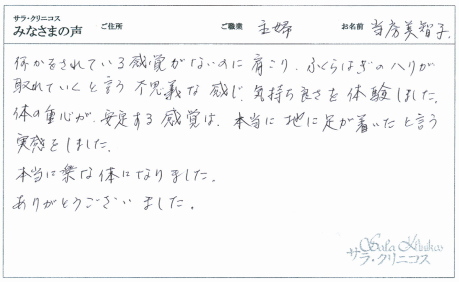 サラ・クリニコス
みなさまの声 ご住所 ご職業 主婦 お名前 当房美智子.
何かをされている感覚がないのに肩こり、ふくらはぎのハリが
取れていくと言う不思義な感じ、気持ち良さを体験しました。
体の重心が、安定する感覚は、本当に地に足が着いたと言う
実感をしました。
本当に楽な体になりました。
ありがとうございました。
Sala Klinikos
サラ・クリニコス